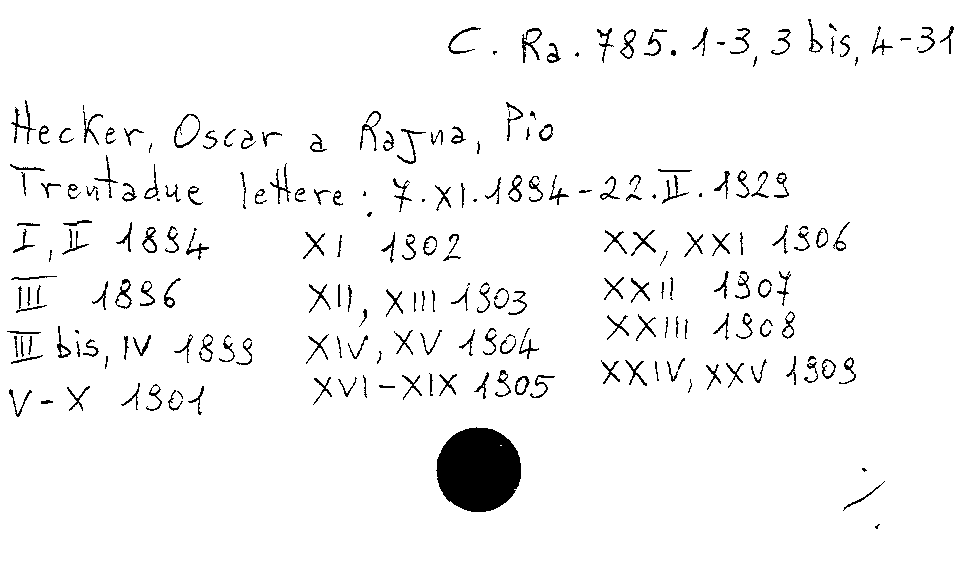 C. Ra. 785. 1-3, 3 bis, 4-31
Hecker, Oscar a Rajna, Pio
Trentadue lettere: 7.XI.1894-22.II.1929
I, II 1894
III 1896
III bis, IV 1899
V-X 1901
XI 1902
XII, XIII 1903
XIV, XV 1904
XVI-XIX 1905
XX, XXI 1906
XXII 1907
XXIII 1908
XXIV, XXV 1909
./.